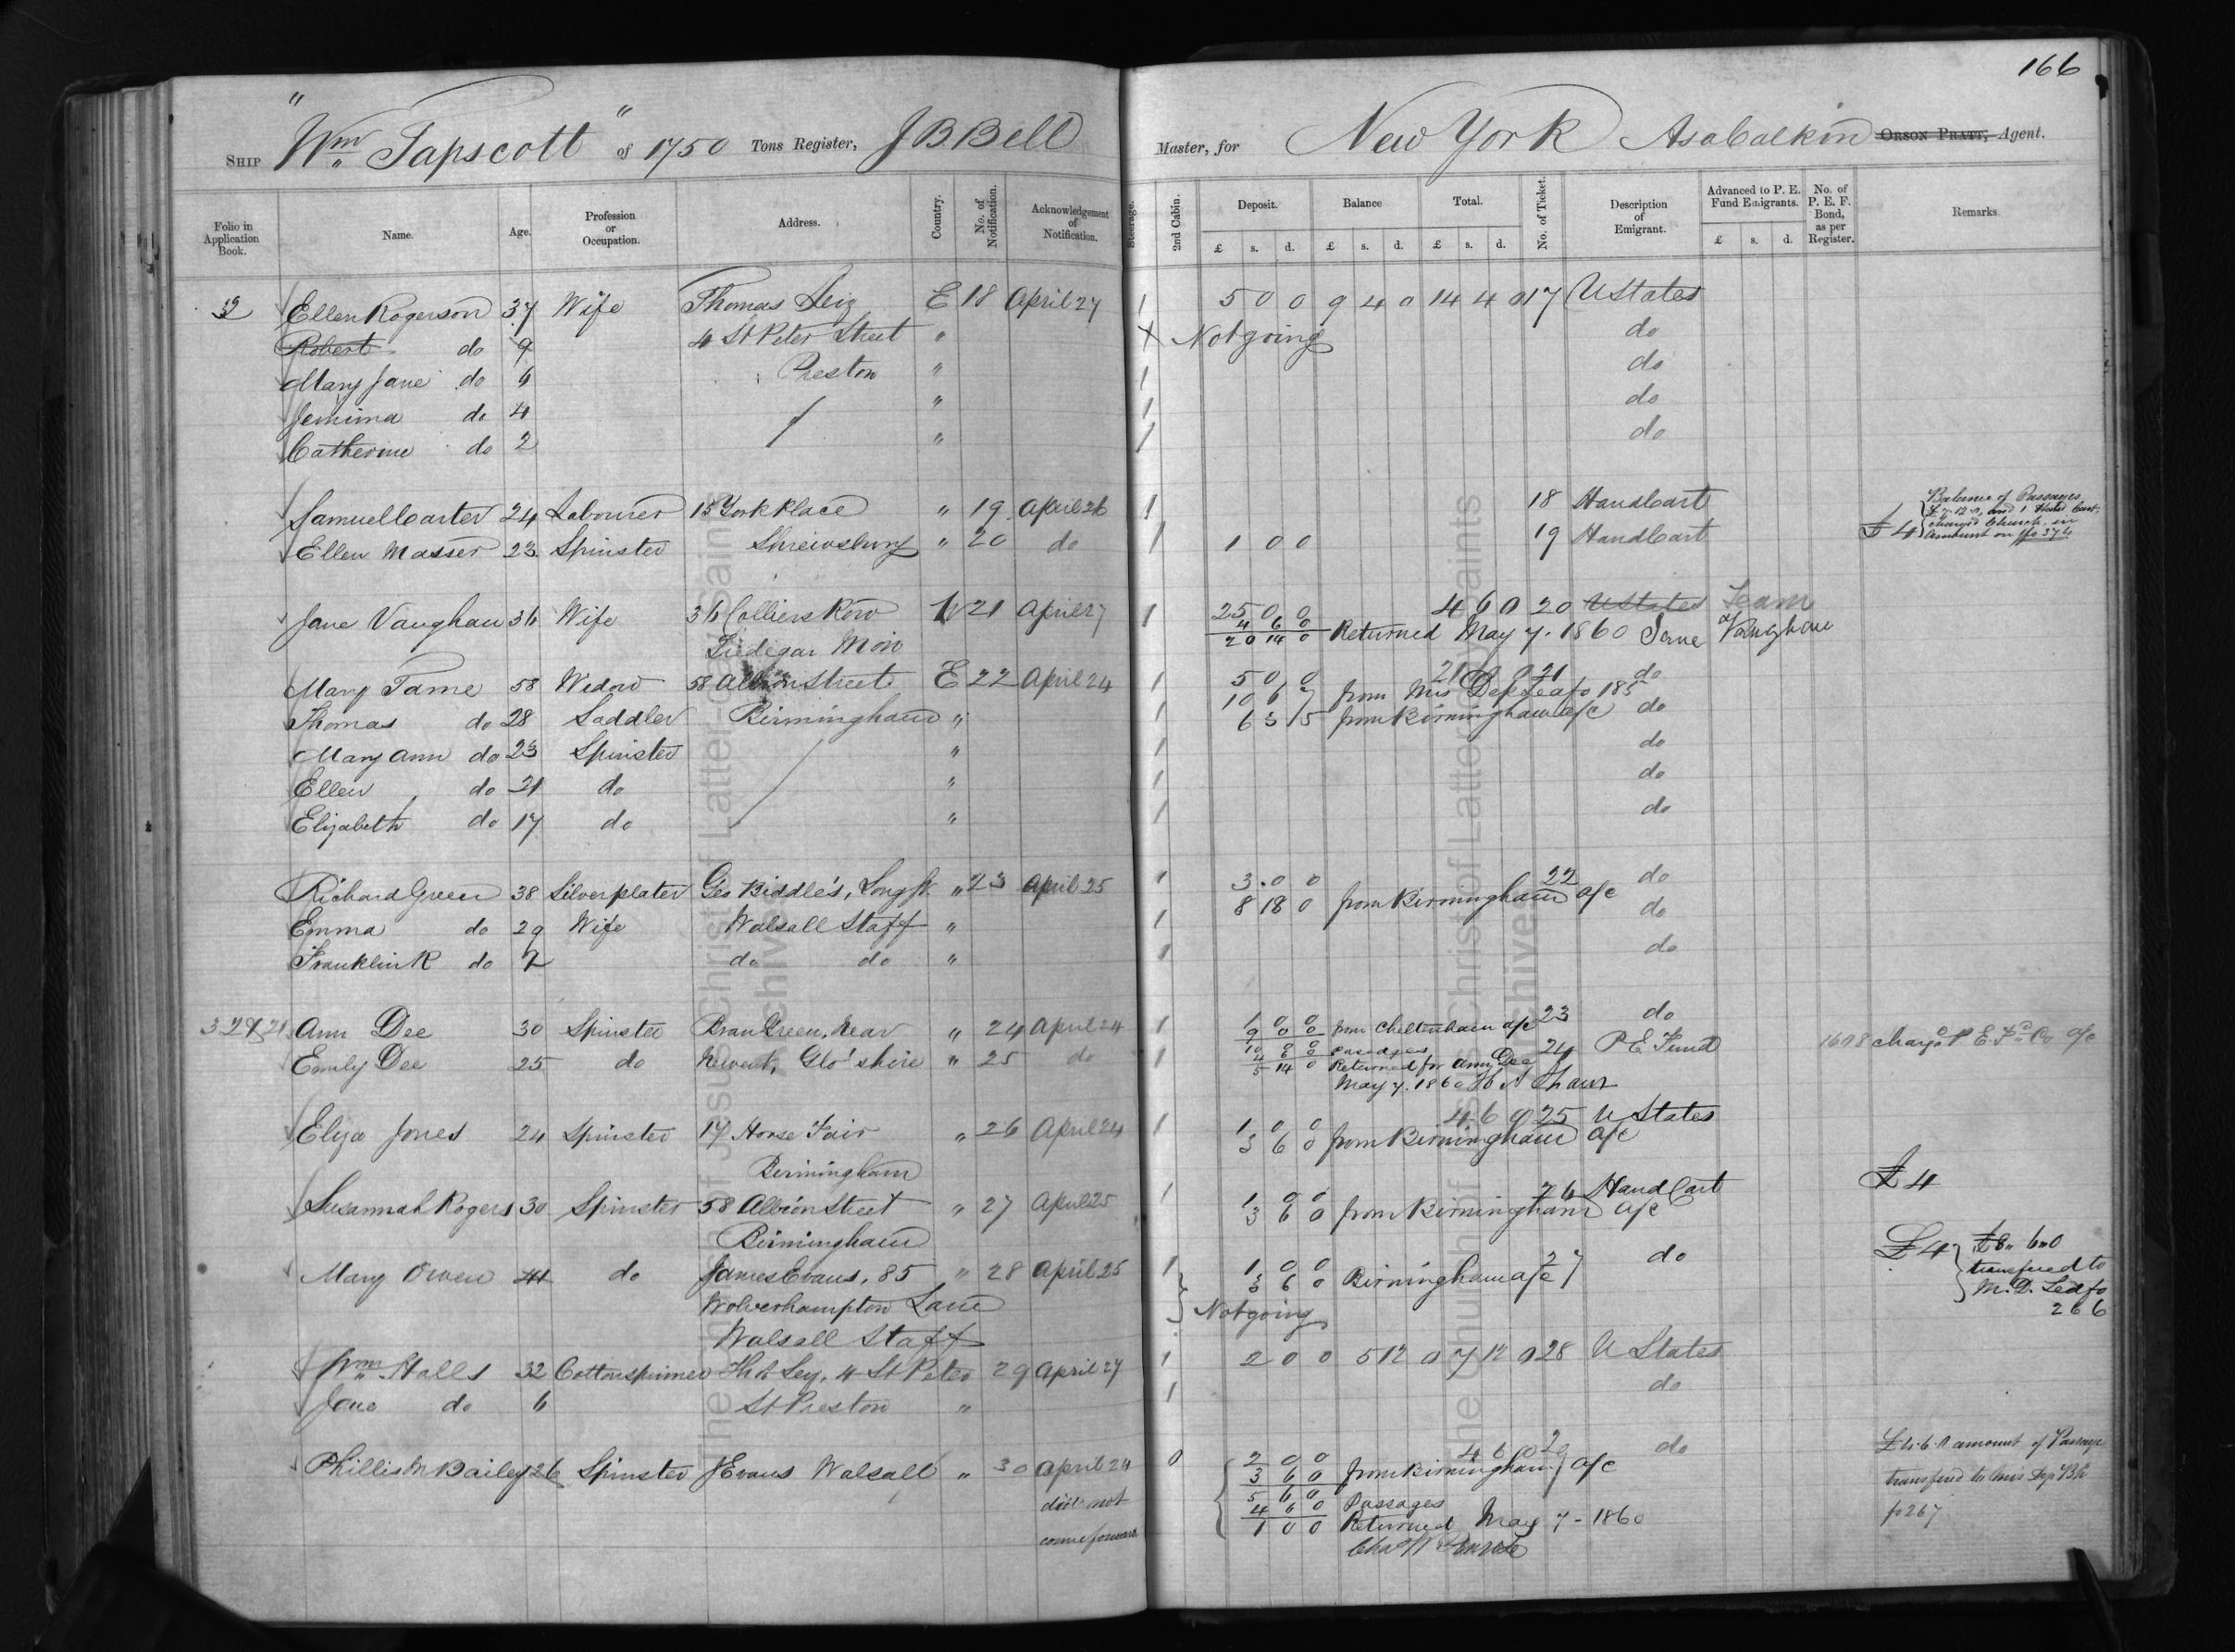 166
Ship "Wm Tapscott" of 1750 Tons Register, J B Bell Master, for New York Asa Calkin Orson Pratt, Agent.
Folio in Application Book. Name. Age. Profession or Occupation. Address. Country. No. of Notification. Acknowledgement of Notification. Steerage. 2nd Cabin. Deposit. Balance Total. No. of Ticket. Description of Emigrant. Advanced to P. E. Fund Emigrants. No. of P. E. F. Bond, as per Register. Remarks
£ s. d. £ s. d. £ s. d. £ s. d.
Ellen Rogerson 37 Wife Thomas E 18 April 27 1 5 0 0 9 4 0 14 4 0 17 U States
Robert do 9 4 St Peter Street " X Not going do
Mary Jane do 6 Preston " 1 do
Jemima do 4 " 1 do
Catherine do 2 " 1 do
Samuel Carter 24 Labourer 15 York Place " 19 April 26 1 18 Hand Cart
Balance of Passages
£7-12-0, and 1 Hand Cart,
charged Church, in
amount on fo 376
Ellen Masser 23 Spinster Shrewsbury " 20 do 1 1 0 0 19 Hand Cart £4
Jane Vaughan 36 Wife 36 Colliers Row W 21 April 27 1 25 0 0 4 6 0 20 U States Team
4 6 0
Tredegar Mon 20 14 0 Returned May 7. 1860 Jane Vaughan
Mary Tame 58 Widow 58 Albion Street E 22 April 24 1 5 0 0 21 do
10 6 7 from Mis Dep Lea fo 185
Thomas do 28 Saddler Birmingham " 1 6 3 5 from Birmingham a/c do
Mary Ann do 23 Spinster " 1 do
Ellen do 21 do " 1 do
Elizabeth do 17 do " 1 do
Richard Green 38 Silver plater Geo Biddle's, Long St. " 23 April 25 1 3 0 0 22 do
8 18 0 from Birmingham a/c
Emma do 29 Wife Walsall Staff " 1 do
Franklin R do 2 do do " 1 do
Ann Dee 30 Spinster Bran Green, Near " 24 April 24 1 1 0 0 23 do
9 0 0 from Cheltenham a/c
Emily Dee 25 do Newent, Glo'shire " 25 do 1 10 0 0 Passages 24 P E Fund 1608 charged P. E. F. Co a/c
4 6 0
5 14 0 Returned for Ann Dee
May 7. 1860
Eliza Jones 24 Spinster 17 Horse Fair " 26 April 24 1 1 0 0 4 6 0 25 U States
3 6 0 from Birmingham a/c
Birmingham
Susannah Rogers 30 Spinster 58 Albion Street " 27 April 25 1 1 0 0 26 Hand Cart £4
3 6 0 from Birmingham a/c
Birmingham
Mary Owen 41 do James Evans, 85 " 28 April 25 1 1 0 0 27 do £4 £8 " 6 " 0
3 6 0 Birmingham a/c
Wolverhampton Lane Not going transfered to
M. D. Led fo
266
Walsall Staff
Wm Halls 32 Cotton spinner 4 St Peter 29 April 27 1 2 0 0 5 12 0 7 12 0 28 U States
Jane do 6 St Preston " 1 do
Phillis M Bailey 26 Spinster J Evans Walsall " 30 April 24 0 2 0 0 4 6 0 29 do £4.6.0 amount of Passage
3 6 0 from Birmingham a/c
transferd to Mis Dep
did not 5 6 0
come forward 4 6 0 Passages
fo 267
1 0 0 Returned May 7 - 1860